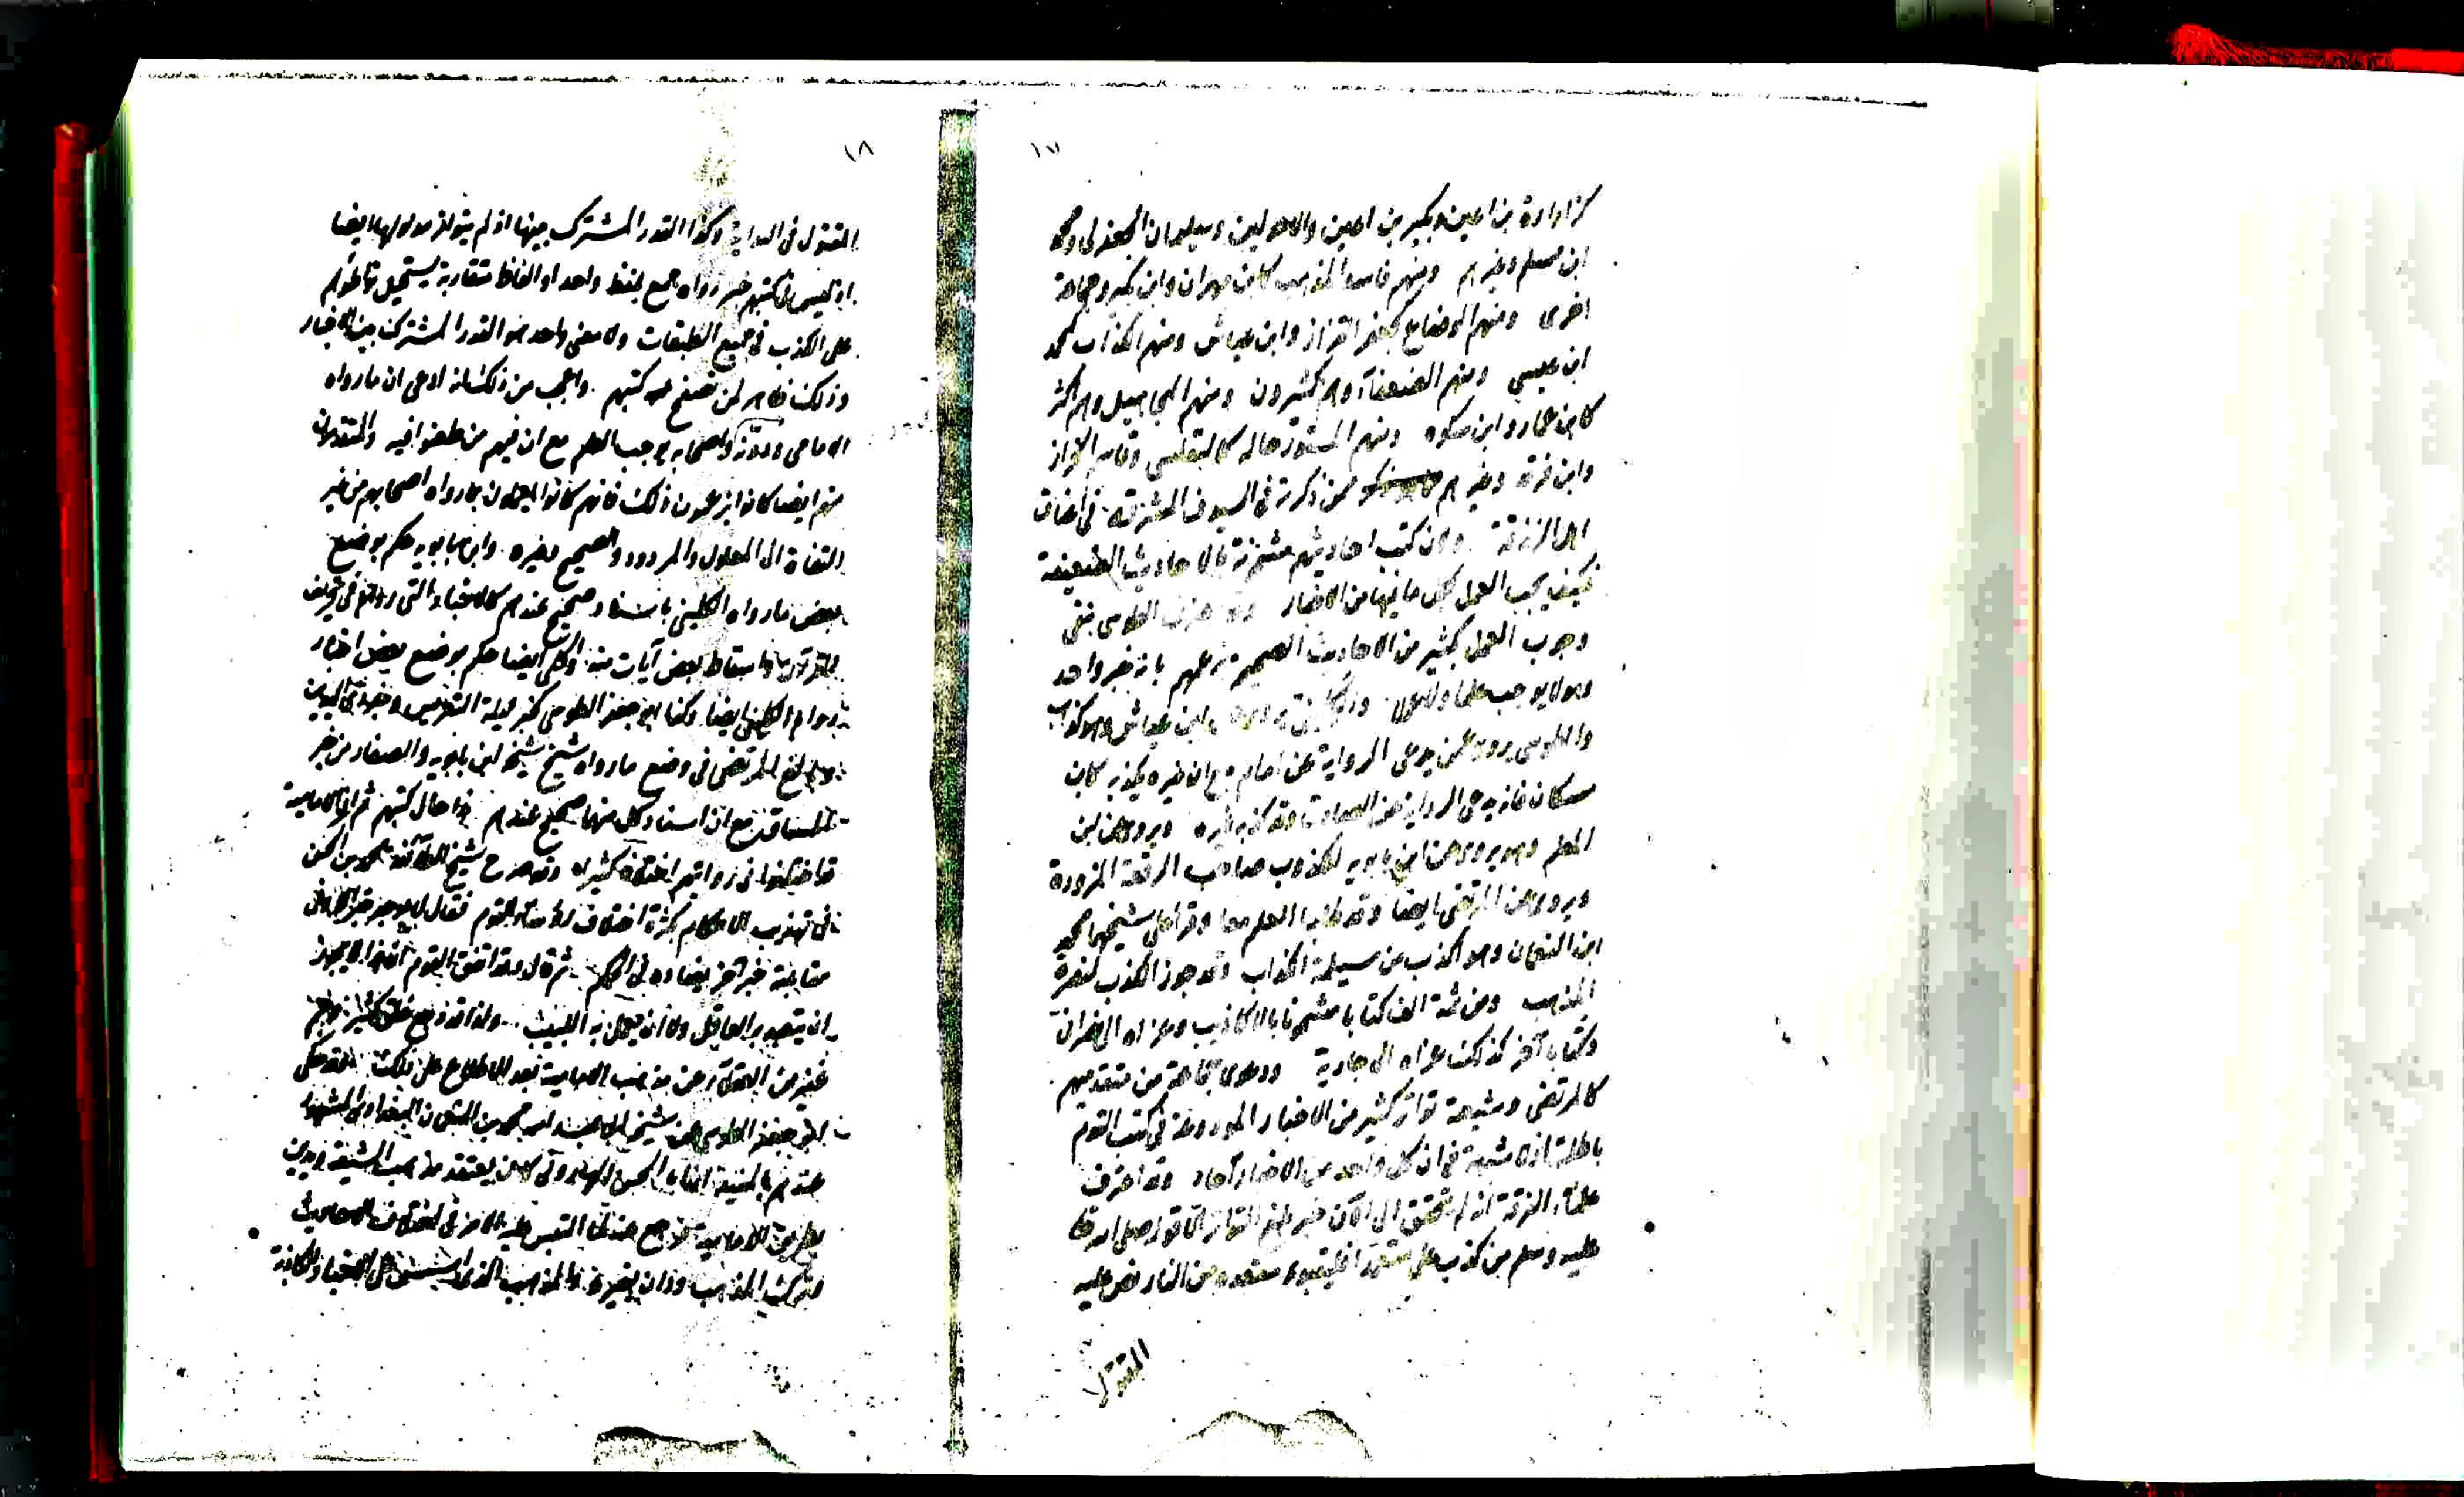 ١٧
كزرارة بن اعين وبكير بن اعين والاحولين وسليمان الجعفرى ومحمد
ابن مسلم وغيرهم ومنهم فاسد المذهب كابن مهران وابن بكير وجماعة
اخرى ومنهم الوضاع كجعفر القزاز وابن عياش ومنهم الكذاب كمحمد
ابن عيسى ومنهم الضعفاء وهم كثيرون ومنهم المجاهيل وهم اكثر
كابن عمار وابن سكره ومنهم المستور حاله كالتفليسى وقاسم الخزاز
وابن فرقد وغيرهم ممن ذكرته فى السيوف المشرقة فى اعناق
اهل الزندقة ولان كتب احاديثهم مشحونة بالاحاديث الضعيفة
فكيف يجب العمل بكل ما فيها من الاخبار وقد اعترف الطوسى بنفى
وجوب العمل بكثير من الاحاديث الصحيحة بزعمهم بانه خبر واحد
وهو لا يوجب علما ولا عملا والكلينى يروى عن ابن عياش وهو كذاب
والطوسى يروى عمن يدعى الرواية عن امام مع ان غيره يكذبه كابن
مسكان فانه يدعى الرواية عن الصادق وقد كذبه غيره ويروى عن ابن
المعلم وهو يروى عن ابن بابويه الكذوب صاحب الرقعة المزورة
ويروى عن المرتضى ايضا وقد طلبا العلم معا وقرآ على شيخهما محمد
ابن النعمان وهو اكذب من مسيلمة الكذاب وقد جوز الكذب لنصرة
المذهب ومن ثمة الف كتابا مشحونا بالاكاذيب وعزاه الى نصرانى
وكتابا آخر كذلك عزاه الى جارية ودعوى جماعة من متقدميهم
كالمرتضى وشيعته تواتر كثير من الاخبار الموردة فى كتب القوم
باطلة اذ لا شبهة فى ان كل واحد من الاخبار آحاد وقد اعترف
علماء الفرقة انه لم يتحقق الى الآن خبر بلغ التواتر الا قوله صلى الله تعالى
عليه وسلم من كذب على متعمدا فليتبوء مقعده من النار نص عليه
المقتول
١٨
المقتول فى البداية وكذا القدر المشترك بينها اذ لم يتواتر مدلولها ايضا
اذ ليس فى كتبهم خبر رواه جمع بلفظ واحد او الفاظ متقاربة يستحيل تواطؤهم
على الكذب فى جميع الطبقات ولا معنى واحد هو القدر المشترك بين الاخبار
وذلك ظاهر لمن تصفح كتبهم واعجب من ذلك انه ادعى ان ما رواه
الامامى واصحابه يوجب العلم مع ان فيهم من طعنوا فيه والمتقدمون
منهم ايضا كانوا يزعمون ذلك فانهم كانوا يعملون بما رواه اصحابهم من غير
التفات الى المعلول والمردود والصحيح وغيره وابن بابويه حكم بوضع
بعض ما رواه الكلينى باسناد صحيح عندهم كالاخبار التى رواها فى تحريف
القرآن واسقاط بعض آيات منه ايضا حكم بوضع بعض اخبار
رواه الكلينى ايضا وكذا ابو جعفر الطوسى كخبر ليلة التعريس وخبر ذى اليدين
المرتضى فى وضع ما رواه شيخ شيخه ابن بابويه والصفار من خبر
الميثاق مع ان اسناد كل منهما صحيح عندهم هذا حال كتبهم ثم ان الامامية
قد اختلفوا فى رواتهم اختلافا كثيرا وقد صرح شيخ الطائفة محمد بن الحسن
فى تهذيب الاحكام بكثرة اختلاف القوم فقال لا يوجد خبر الا وفى
مقابلته خبر آخر يضاده فى الحكم ثم قال وقد اتفق القوم
ان يتعبد به العاقل ولا ان يعمل به اللبيب ولذا قد رجع خلق كثير وجم
غفير من العقلاء عن مذهب الامامية بعد الاطلاع على ذلك وقد حكى
ابو جعفر الطوسى عن شيخه ابى عبد الله محمد بن النعمان البغدادى المشهور
عندهم بالمفيد ان ابا الحسن الهارونى كان يعتقد مذهب الشيعة ويدين
بطريق الامامية فرجع عنه لما التبس عليه الامر فى اختلاف الاحاديث
وترك المذهب ودان بغيره والمذهب الذى على الاخبار الكاذبة